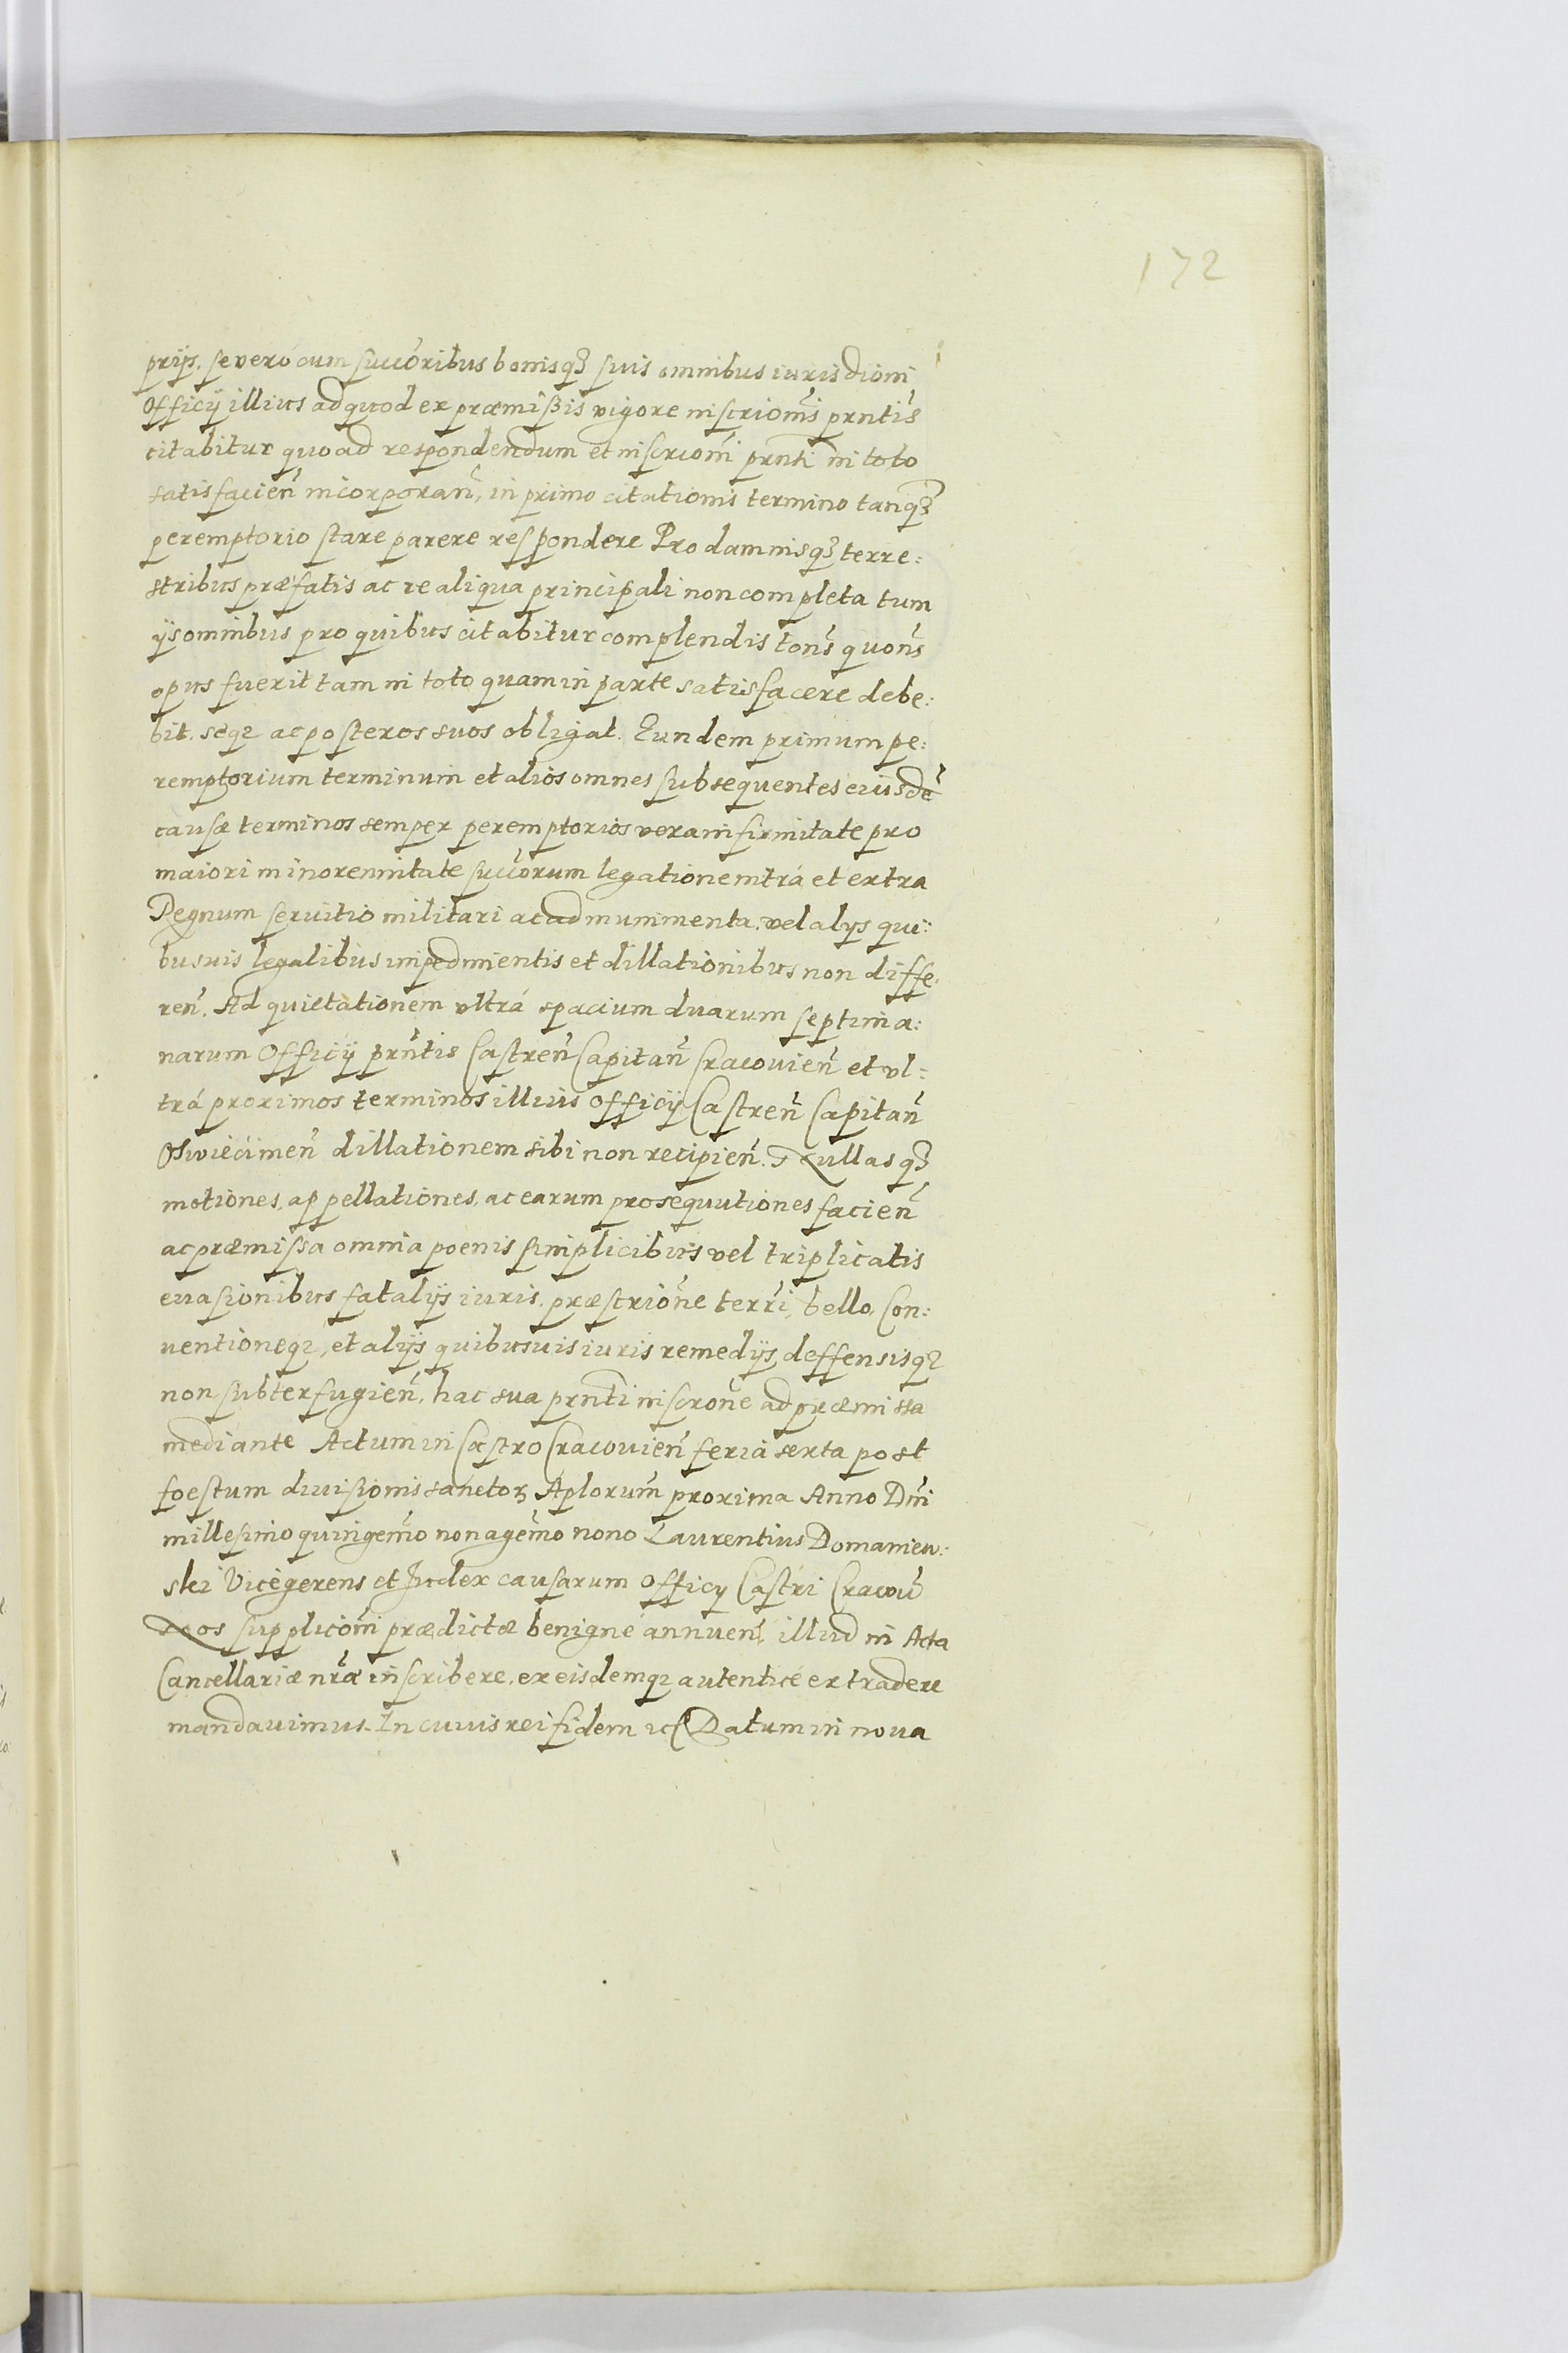 172
prijs. se veró cum succoribus bonisqꝫ suis omnibus iurisdioni
Officij illius ad quod ex præmißis vigore inscrionis prntis
citabitur quoad respondendum et inscrioni prnti in toto
satisfacien incorporan, in primo citationis termino tanqꝫ
peremptorio stare parere respondere Pro damnisqꝫ terre:
stribus præfatis ac re aliqua principali non completa tum
ijs omnibus pro quibus citabitur complendis tons quons
opus fuerit tam in toto quam in parte satisfacere debe:
bit. seqꝫ ac posteros suos obligat. Eundem primum pe:
remptorium terminum et alios omnes subsequentes eiusdē
causæ terminos semper peremptorios vera infirmitate pro
maiori minorennitate succorum legatione intrá et extra
Regnum servitio militari ac ad munimenta. vel alys qui:
busuis legalibus impedimentis et dillationibus non diffe:
ren. Ad quietationem vltrá spacium duarum septima:
narum Officij prntis Castren Capitan Cracouien et vl:
trá proximos terminos illius officij Castren Capitan
Oswiecimen dillationem sibi non recipien. Nullasqꝫ
motiones, appellationes, ac earum prosequutiones facien
ac præmissa omnia poenis simplicibus vel triplicatis
euasionibus fatalijs iuris. præscrione terri, bello, Con:
uentioneqꝫ, et alijs quibusuis iuris remedijs deffensisqꝫ
non subterfugien, hac sua prnti inscrone ad præmissa
mediante Actum in Castro Cracouien feria sexta post
foestum diuisionis sanctoꝝ Aplorum proxima Anno Dni
millesimo quingemo nonagemo nono Laurentius Domaniew:
ski Vicegerens et Judex causarum officy Castri Cracouꝰ
Nos supplicõni prædictæ benigné annuen, illud in Acta
Cancellariæ nræ inscribere, ex eisdemqꝫ autenticé extradere
mandauimus. In cuius rei fidem etc Datum in noua